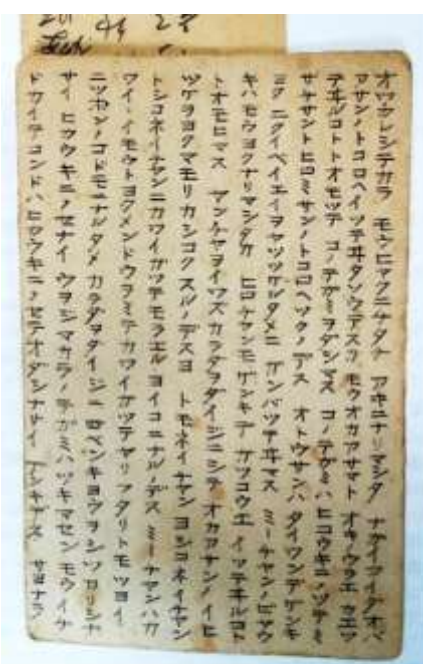 オワカレシテカラ アキニナリマシタ ナガイアイダオバ
アサン トコロヘイッテヰタ モウオカアサマト カエッ
テヰルコトトオモッテ コノテガミヲダシマス コノテガミハヒコウキニノッテミ
ナサント ヒロミサンノトコロヘツクノデス オトウサンハ タイワンデゲンキ
ヨク ニクイベイエイヲヤッツケルタメニ ガンバッテヰマス ミーチャンノビョウ
キハモウヨクナリマシタカ ヒロチャンモゲンキデ ガッコウエ イッテヰルコト
トオモヒマス カラダヲダイジニシテ オカアサンノイヒ
ツケヲヨクマモリカシコクスルノデスヨ トモネイチャン ヨシコネイチャン
トシコネイチャンニカワイガッテモラエルヨイコニナルノデス ミーチャンハカ
ワイイイモウトヨクメンドウヲミテカワイガッテヤリフタリトモツヨイ
ニッポンノコドモニナルタメ カラダヲダイジニ ベンキョウヲシッカリシナ
サイ ヒコウキニノセナイ カラノテガミハツキマセン モウイチ
コンドハヒコウキニノセテオダシナサイ サヨナラ